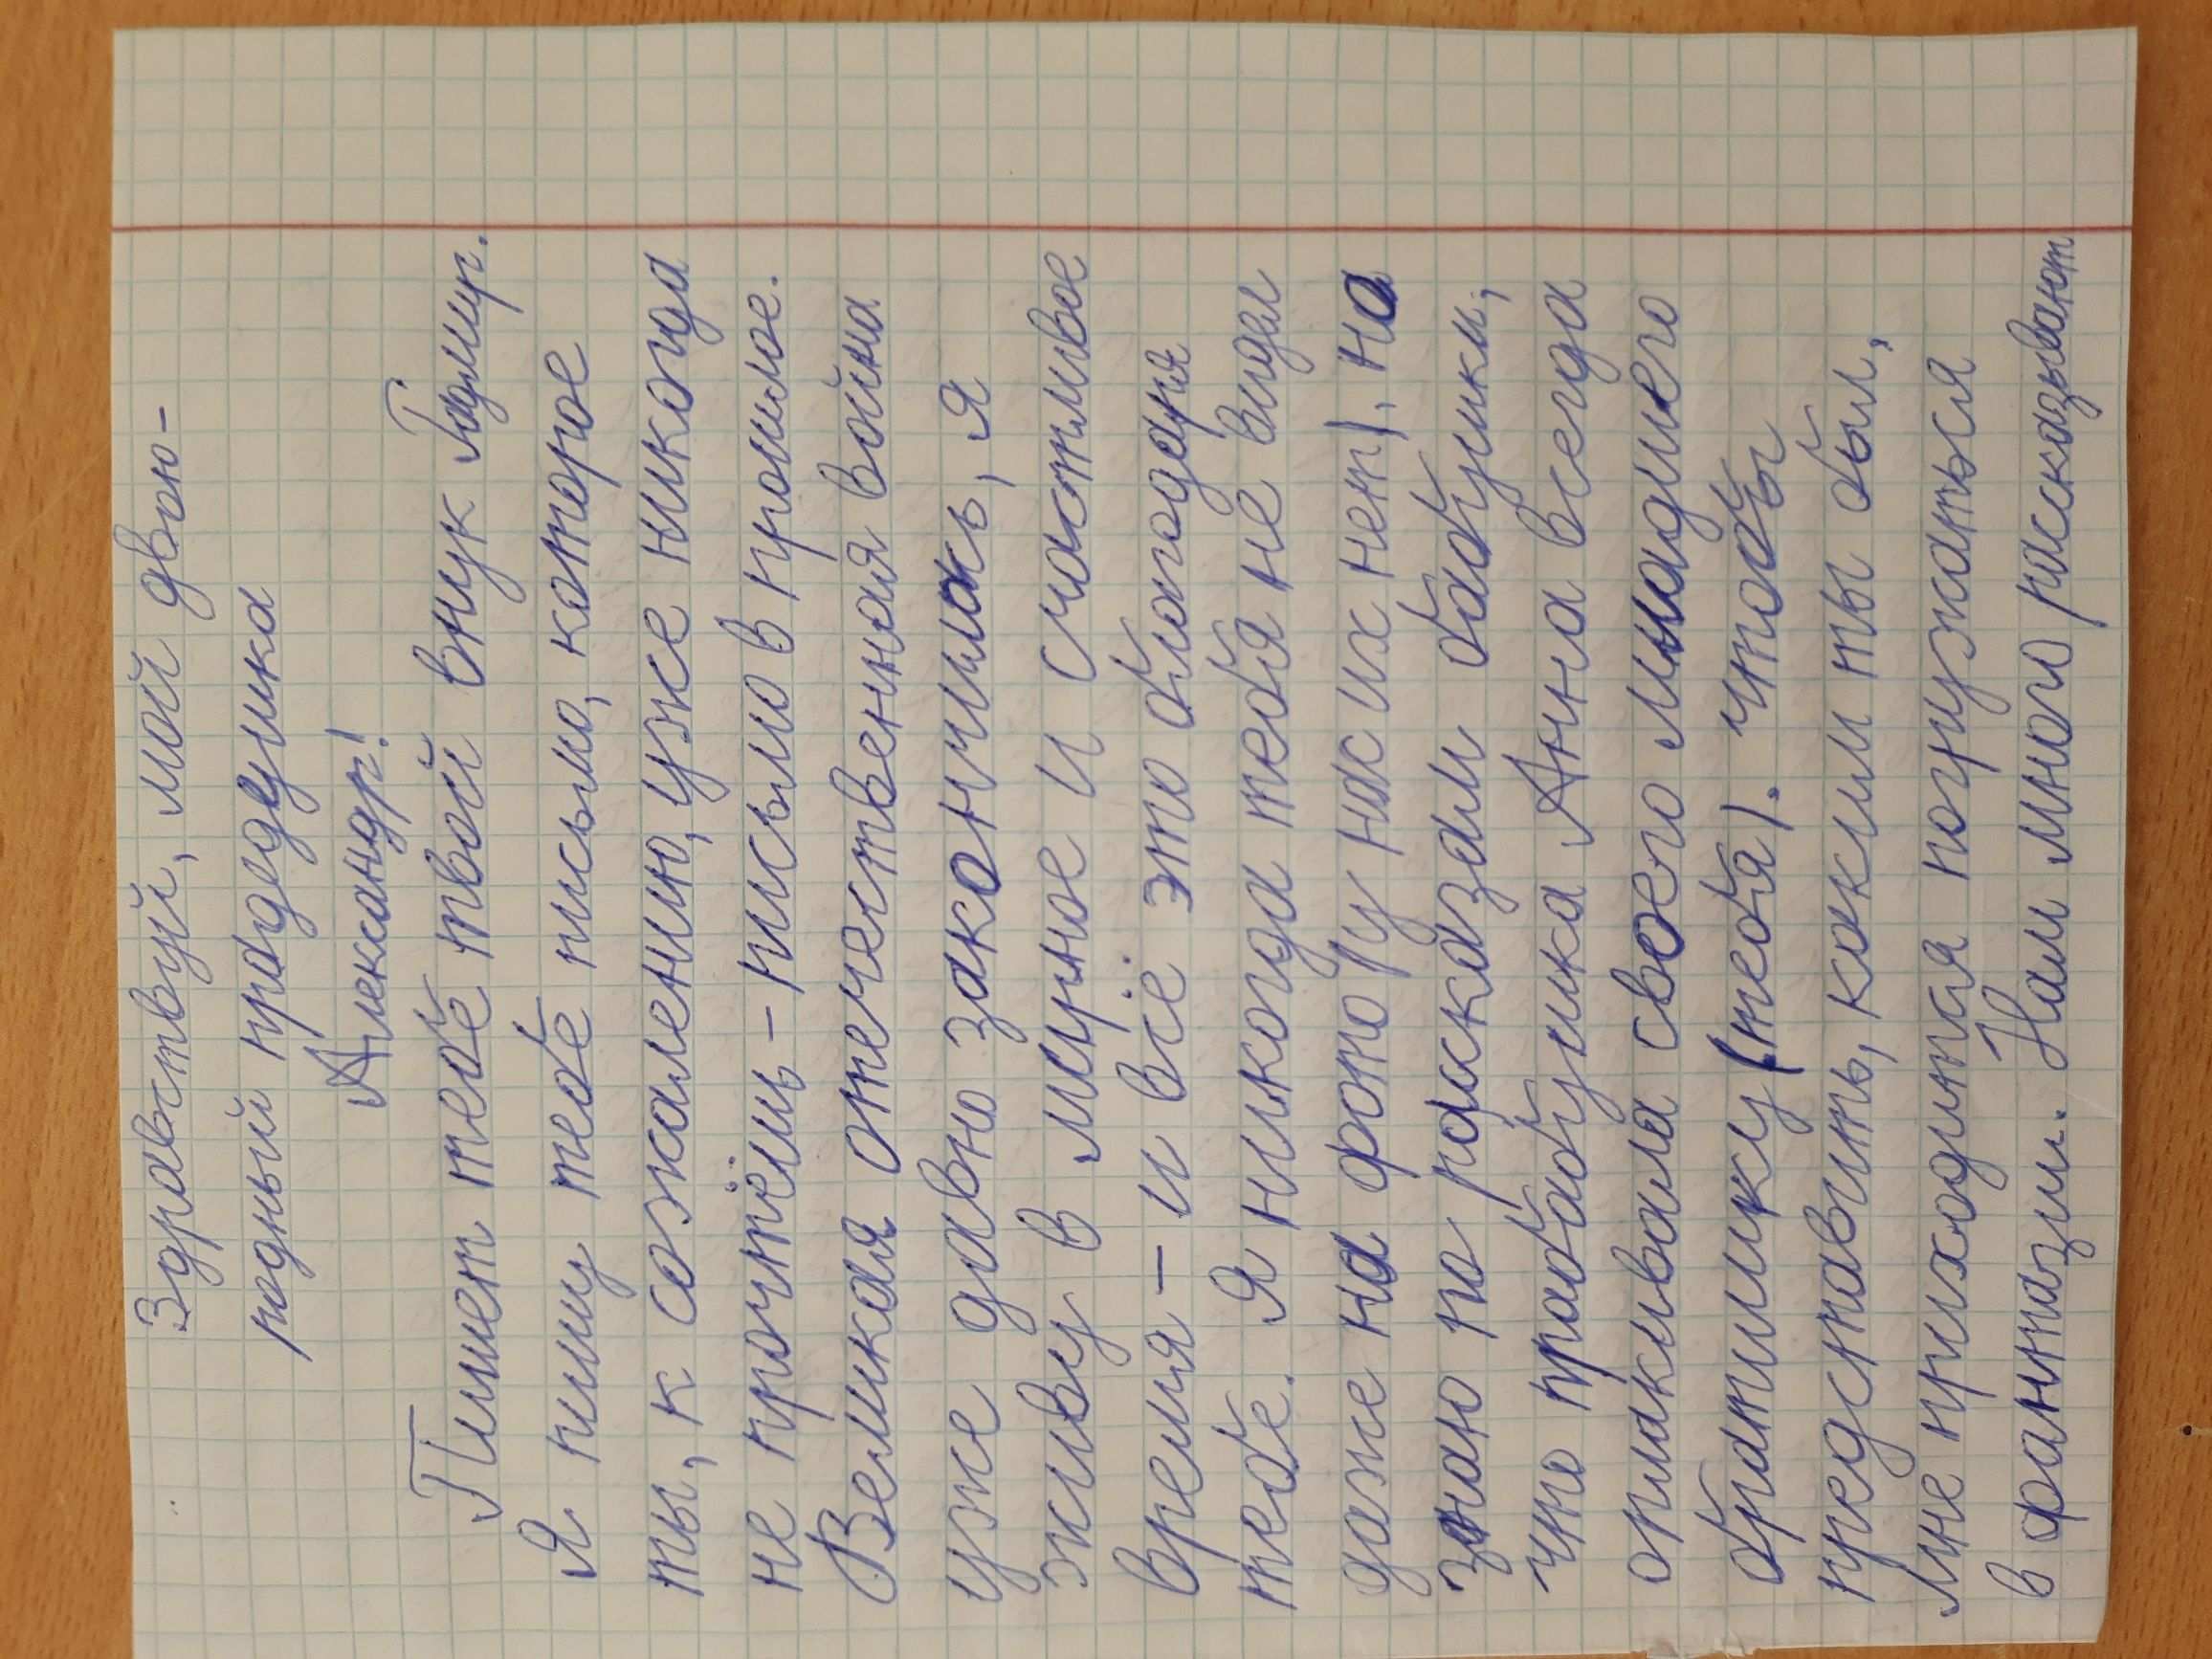 Здравствуй, мой двою-
родный прадедушка
Александр!
Пишет тебе твой внук Тагир.
Я пишу тебе письмо, которое
ты, к сожалению, уже никогда
не прочтёшь - письмо в прошлое.
Великая отечественная война
уже давно закончилась, я
живу в мирное и счастливое
время - и всё это благодаря
тебе. Я никогда тебя не видел
даже на фото (у нас их нет), но
знаю по рассказам бабушки,
что прабабушка Анна всегда
оплакивала своего младшего
братишку (тебя). Чтобы
представить, каким ты был,
мне приходится погружаться
в фантазии. Нам много рассказывают